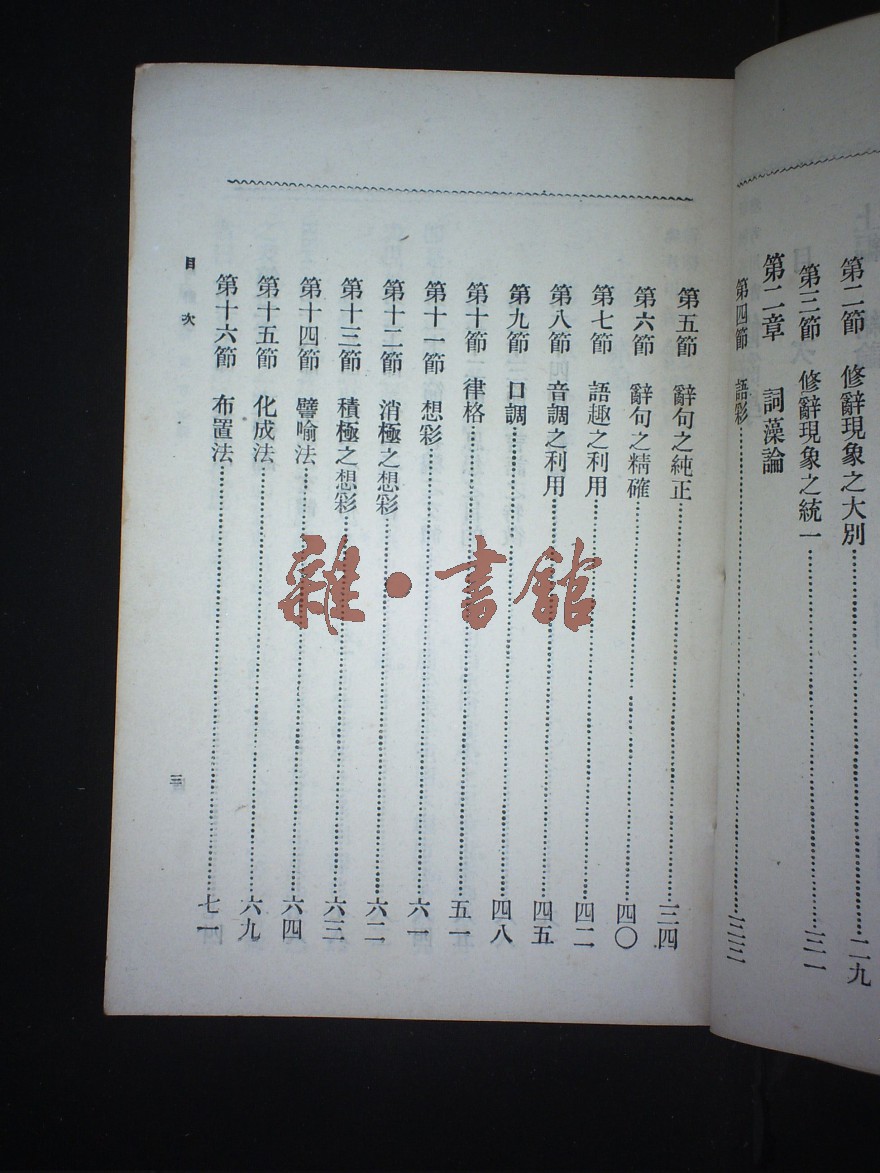 第二節 修辭現象之大別……二九
第三節 修辭現象之統一……三一
第二章 詞藻論
第四節 語彩……三三
第五節 辭句之純正……三四
第六節 辭句之精確……四〇
第七節 語趣之利用……四二
第八節 音調之利用……四五
第九節 口調……四八
第十節 律格……五一
第十一節 想彩……六一
第十二節 消極之想彩……六二
第十三節 積極之想彩……六三
第十四節 譬喻法……六四
第十五節 化成法……六九
第十六節 布置法……七一
目次
三
雜·書館